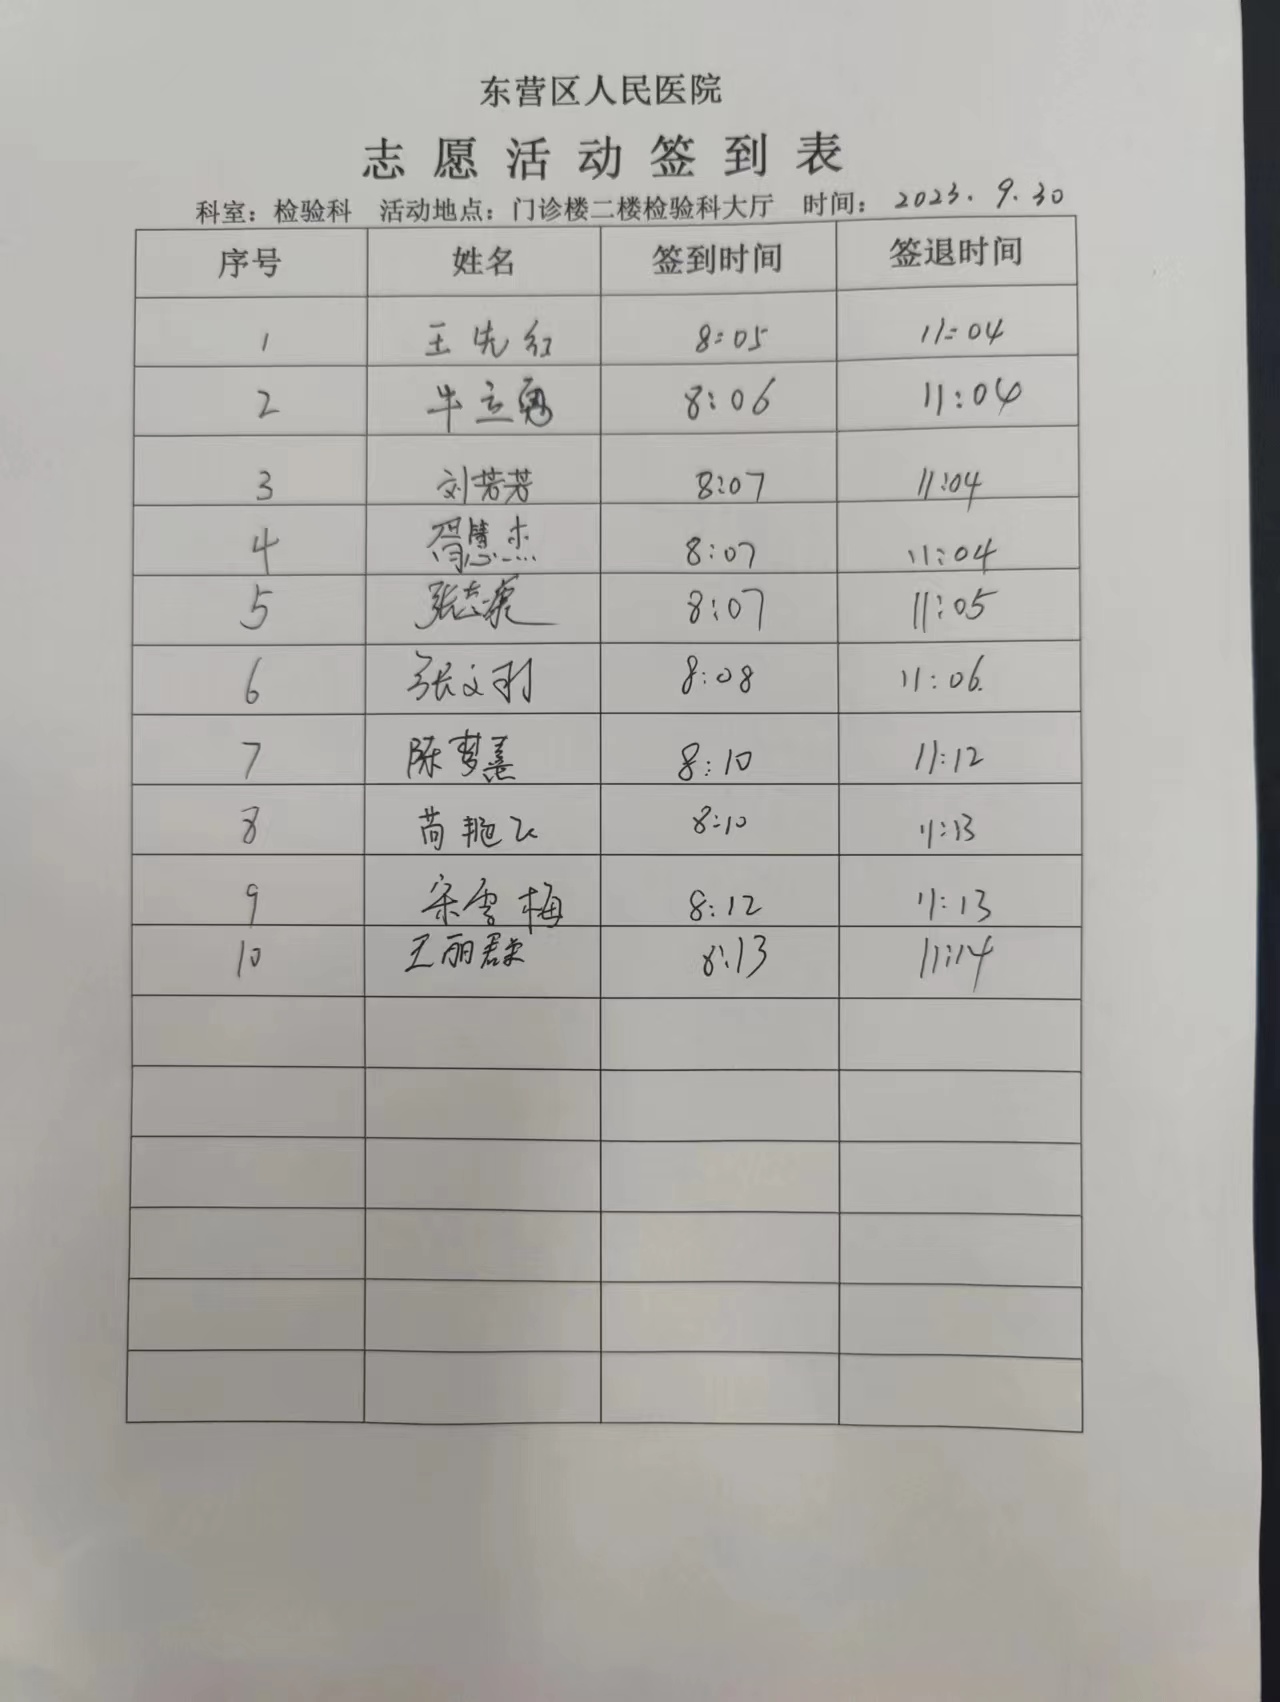 东营区人民医院
志愿活动签到表
科室：检验科 活动地点：门诊楼二楼检验科大厅 时间：2023.9.30
序号 姓名 签到时间 签退时间
1 王先红 8:05 11:04
2 牛立勇 8:06 11:04
3 刘芳芳 8:07 11:04
4 8:07 11:04
5 8:07 11:05
6 张文羽 8:08 11:06.
7 陈梦 8:10 11:12
8 苘艳飞 8:10 11:13
9 宋雪梅 8:12 11:13
10 王丽 8:13 11:14